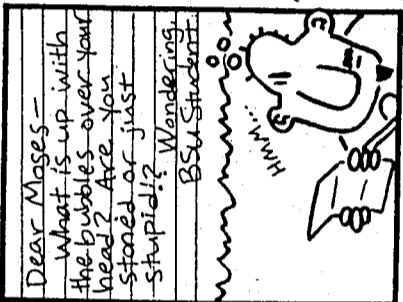 Dear Moses-
What is up with
the bubbles over your
head? Are you
stoned or just
stupid!?
Wondering,
BSU Student
HMM...